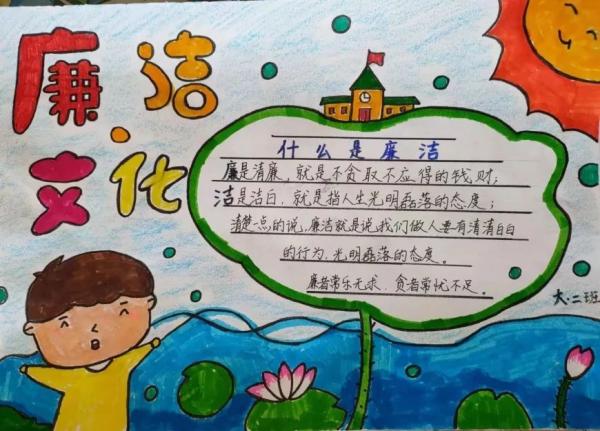 廉洁
文化
什么是廉洁
廉是清廉，就是不贪取不应得的钱财；
洁是洁白，就是指人生光明磊落的态度；
清楚一点的说，廉洁就是说我们做人要有清清白白
的行为，光明磊落的态度。
廉者常乐无求，贪者常忧不足。
大.二班